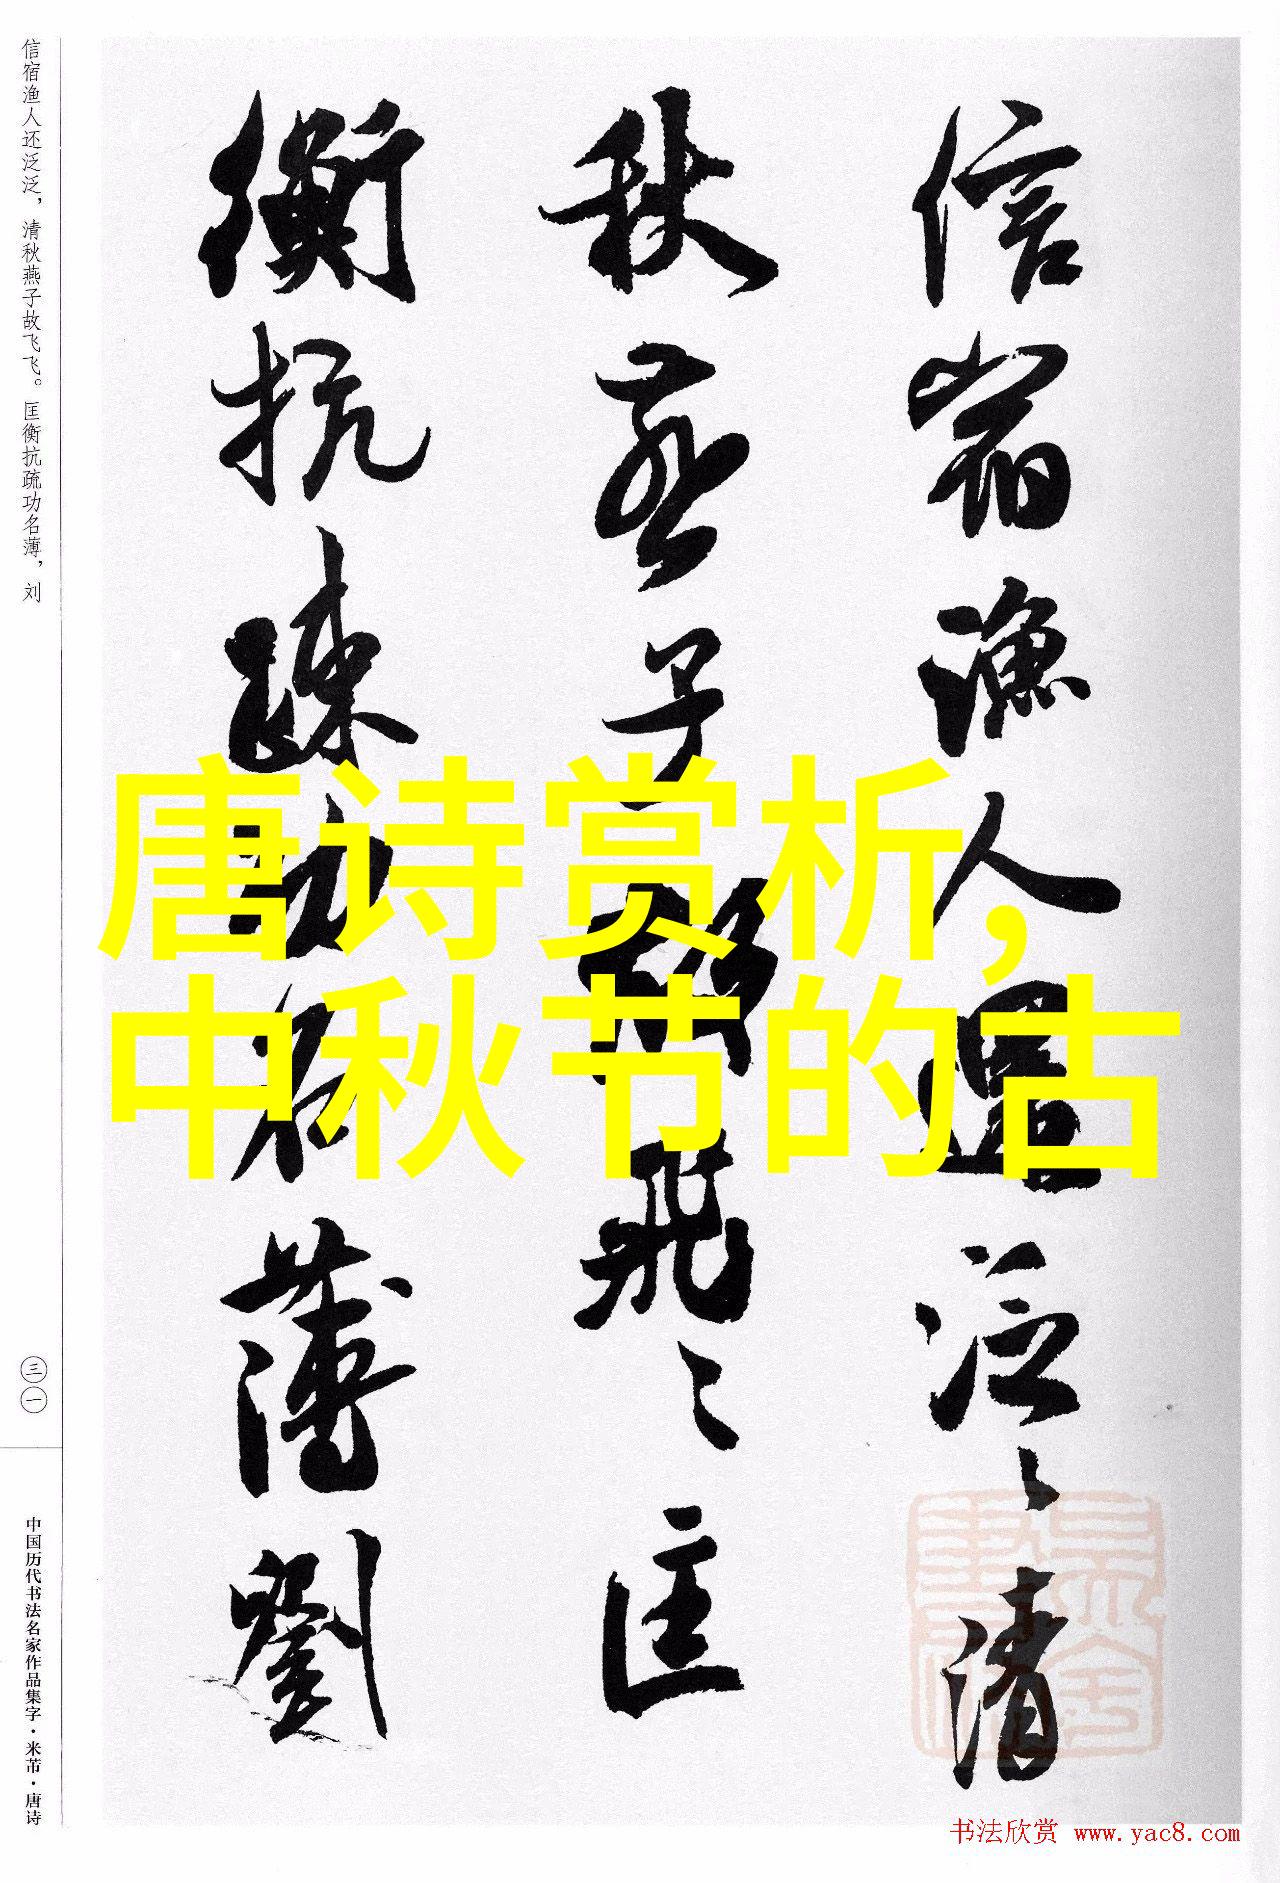 信宿渔人还泛泛，清秋燕子故飞飞。匡衡抗疏功名薄，刘
三一
中国历代书法名家作品集字·米芾·唐诗
信宿漁人還泛泛清
秋燕子故飛飛匡
衡抗疏功名薄劉
唐诗赏析，
中秋节的古
书法欣赏 www.yac8.com